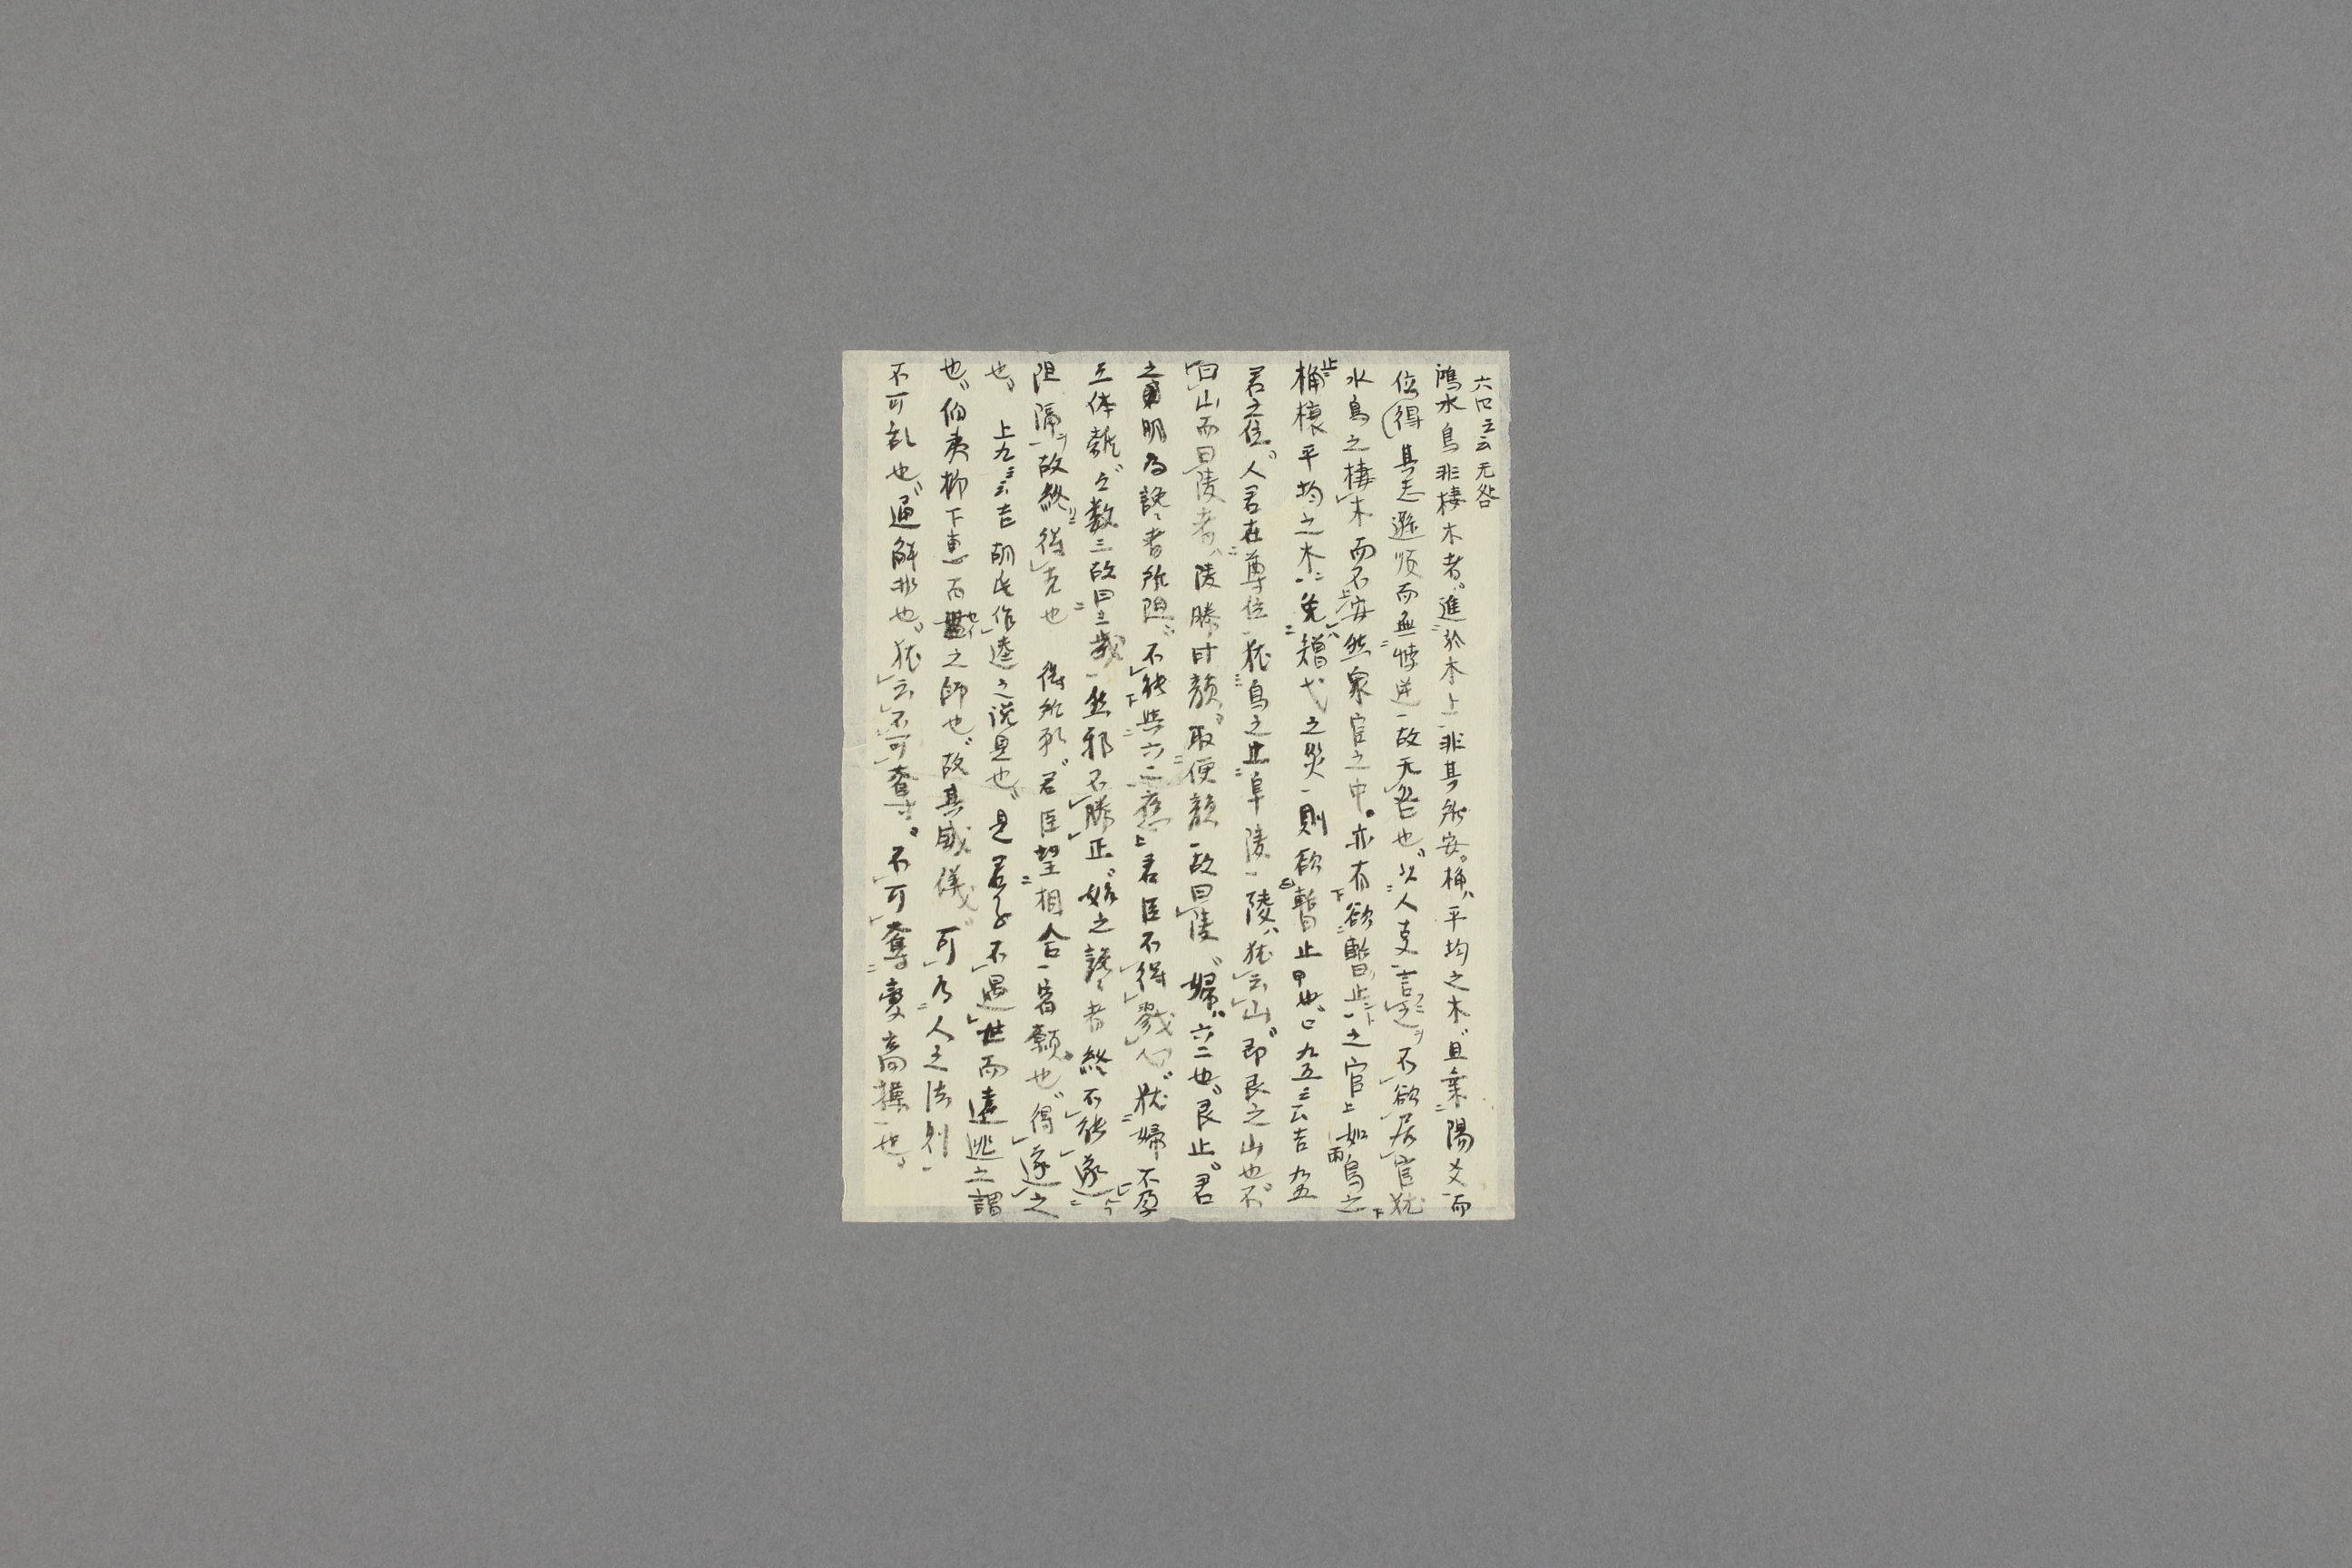 六四云云无咎
鴻水鳥非棲木者進於木上非其所安桷平均之木且乗陽爻而
位得其志遜順而無悖逆故无咎也以人支言之不欲居官犹
水鳥之棲木而不安然衆官之中亦有欲暫止之官上如鳥之
桷榱平均之木免矰弋之災則欲暫止也九五云云吉九五
君之位人君在尊位犹鳥之止阜陵陵犹云山即艮之山也不
曰山而曰陵者陵勝叶韻取便韻故曰陵婦六二也艮止君
之明為讒者所阻不能与六二應君臣不得戮心犹婦不孕
互体離数三故曰三歳然邪不勝正始之讒者終不能遂
阻隔故終得克也 得所願君臣望相合宿願也得遂之
也 上九云云吉 胡氏作逵之説是也是君子不遇世而遠逃之謂
也伯夷柳下惠百世之師也故其威儀可為人之法則
不可乱也通解非也犹云不可奪不可奪変高操也